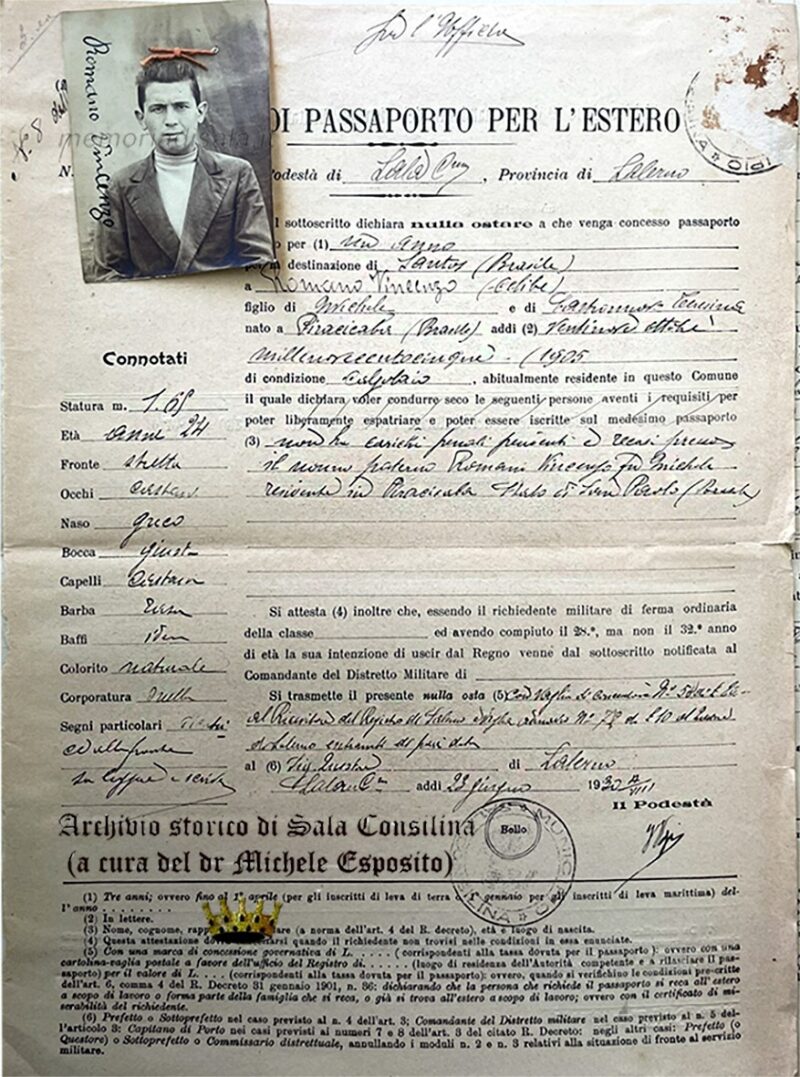 per l'Ufficio
DI PASSAPORTO PER L'ESTERO
N.
Romano Vincenzo
Podestà di Sala Cna, Provincia di Salerno
l sottoscritto dichiara nulla ostare a che venga concesso passaporto
per (1) un anno
destinazione di Santos (Brasile)
a Romano Vincenzo (celibe)
figlio di Michele e di
nato a Piracicaba (Brasile) addì (2) Ventinove ottobre
millenovecentocinque - (1905
di condizione Calzolaio, abitualmente residente in questo Comune
il quale dichiara voler condurre seco le seguenti persone aventi i requisiti per
poter liberamente espatriare e poter essere iscritte sul medesimo passaporto
(3) non ha carichi penali pendenti e recasi presso
il nonno paterno Romano Vincenzo fu Michele
residente in Piracicaba Stato di San Paolo (Brasile)
Connotati
Statura m. 1.65
Età anni 24
Fronte stretta
Occhi castani
Naso greco
Bocca giusta
Capelli castani
Barba rasa
Baffi idem
Colorito naturale
Corporatura snella
Segni particolari
ed alla fronte
sa leggere e scrivere
Si attesta (4) inoltre che, essendo il richiedente militare di ferma ordinaria
della classe ed avendo compiuto il 28.°, ma non il 32.° anno
di età la sua intenzione di uscir dal Regno venne dal sottoscritto notificata al
Comandante del Distretto Militare di
Si trasmette il presente nulla osta (5) Con Vaglia di
al del Registro di Salerno e Vaglia N° 78 di £10 al
di Salerno entrambi di pari data
al (6) Sig. Questore di Salerno
Sala Cna addì 23 giugno 1930 A VIII
Il Podestà
Bollo
Archivio storico di Sala Consilina
(a cura del dr Michele Esposito)
(1) Tre anni; ovvero fino al 1° aprile (per gli inscritti di leva di terra o 1° gennaio per gli inscritti di leva marittima) del-
l'anno
(2) In lettere.
(3) Nome, cognome, rapp are (a norma dell'art. 4 del R. decreto), età e luogo di nascita.
(4) Questa attestazione do arsi quando il richiedente non trovisi nelle condizioni in essa enunciate.
(5) Con una marca di concessione governativa di L. . . . . (corrispondenti alla tassa dovuta per il passaporto): ovvero con una
cartolina-vaglia postale a favore dell'ufficio del Registro di. . . . . (luogo di residenza dell'Autorità competente a rilasciare il pas-
saporto) per il valore di L. . . . . (corrispondenti alla tassa dovuta per il passaporto): ovvero, quando si verifichino le condizioni prescritte
dell'art. 6, comma 4 del R. Decreto 31 gennaio 1901, n. 36: dichiarando che la persona che richiede il passaporto si reca all'estero
a scopo di lavoro o forma parte della famiglia che si reca, o già si trova all'estero a scopo di lavoro; ovvero con il certificato di mi-
serabilità del richiedente.
(6) Prefetto o Sottoprefetto nel caso previsto al n. 4 dell'art. 3; Comandante del Distretto militare nel caso previsto al n. 5 del-
l'articolo 3: Capitano di Porto nei casi previsti ai numeri 7 e 8 dell'art. 3 del citato R. Decreto: negli altri casi: Prefetto (o
Questore) o Sottoprefetto o Commissario distrettuale, annullando i moduli n. 2 e n. 3 relativi alla situazione di fronte al servizio
militare.